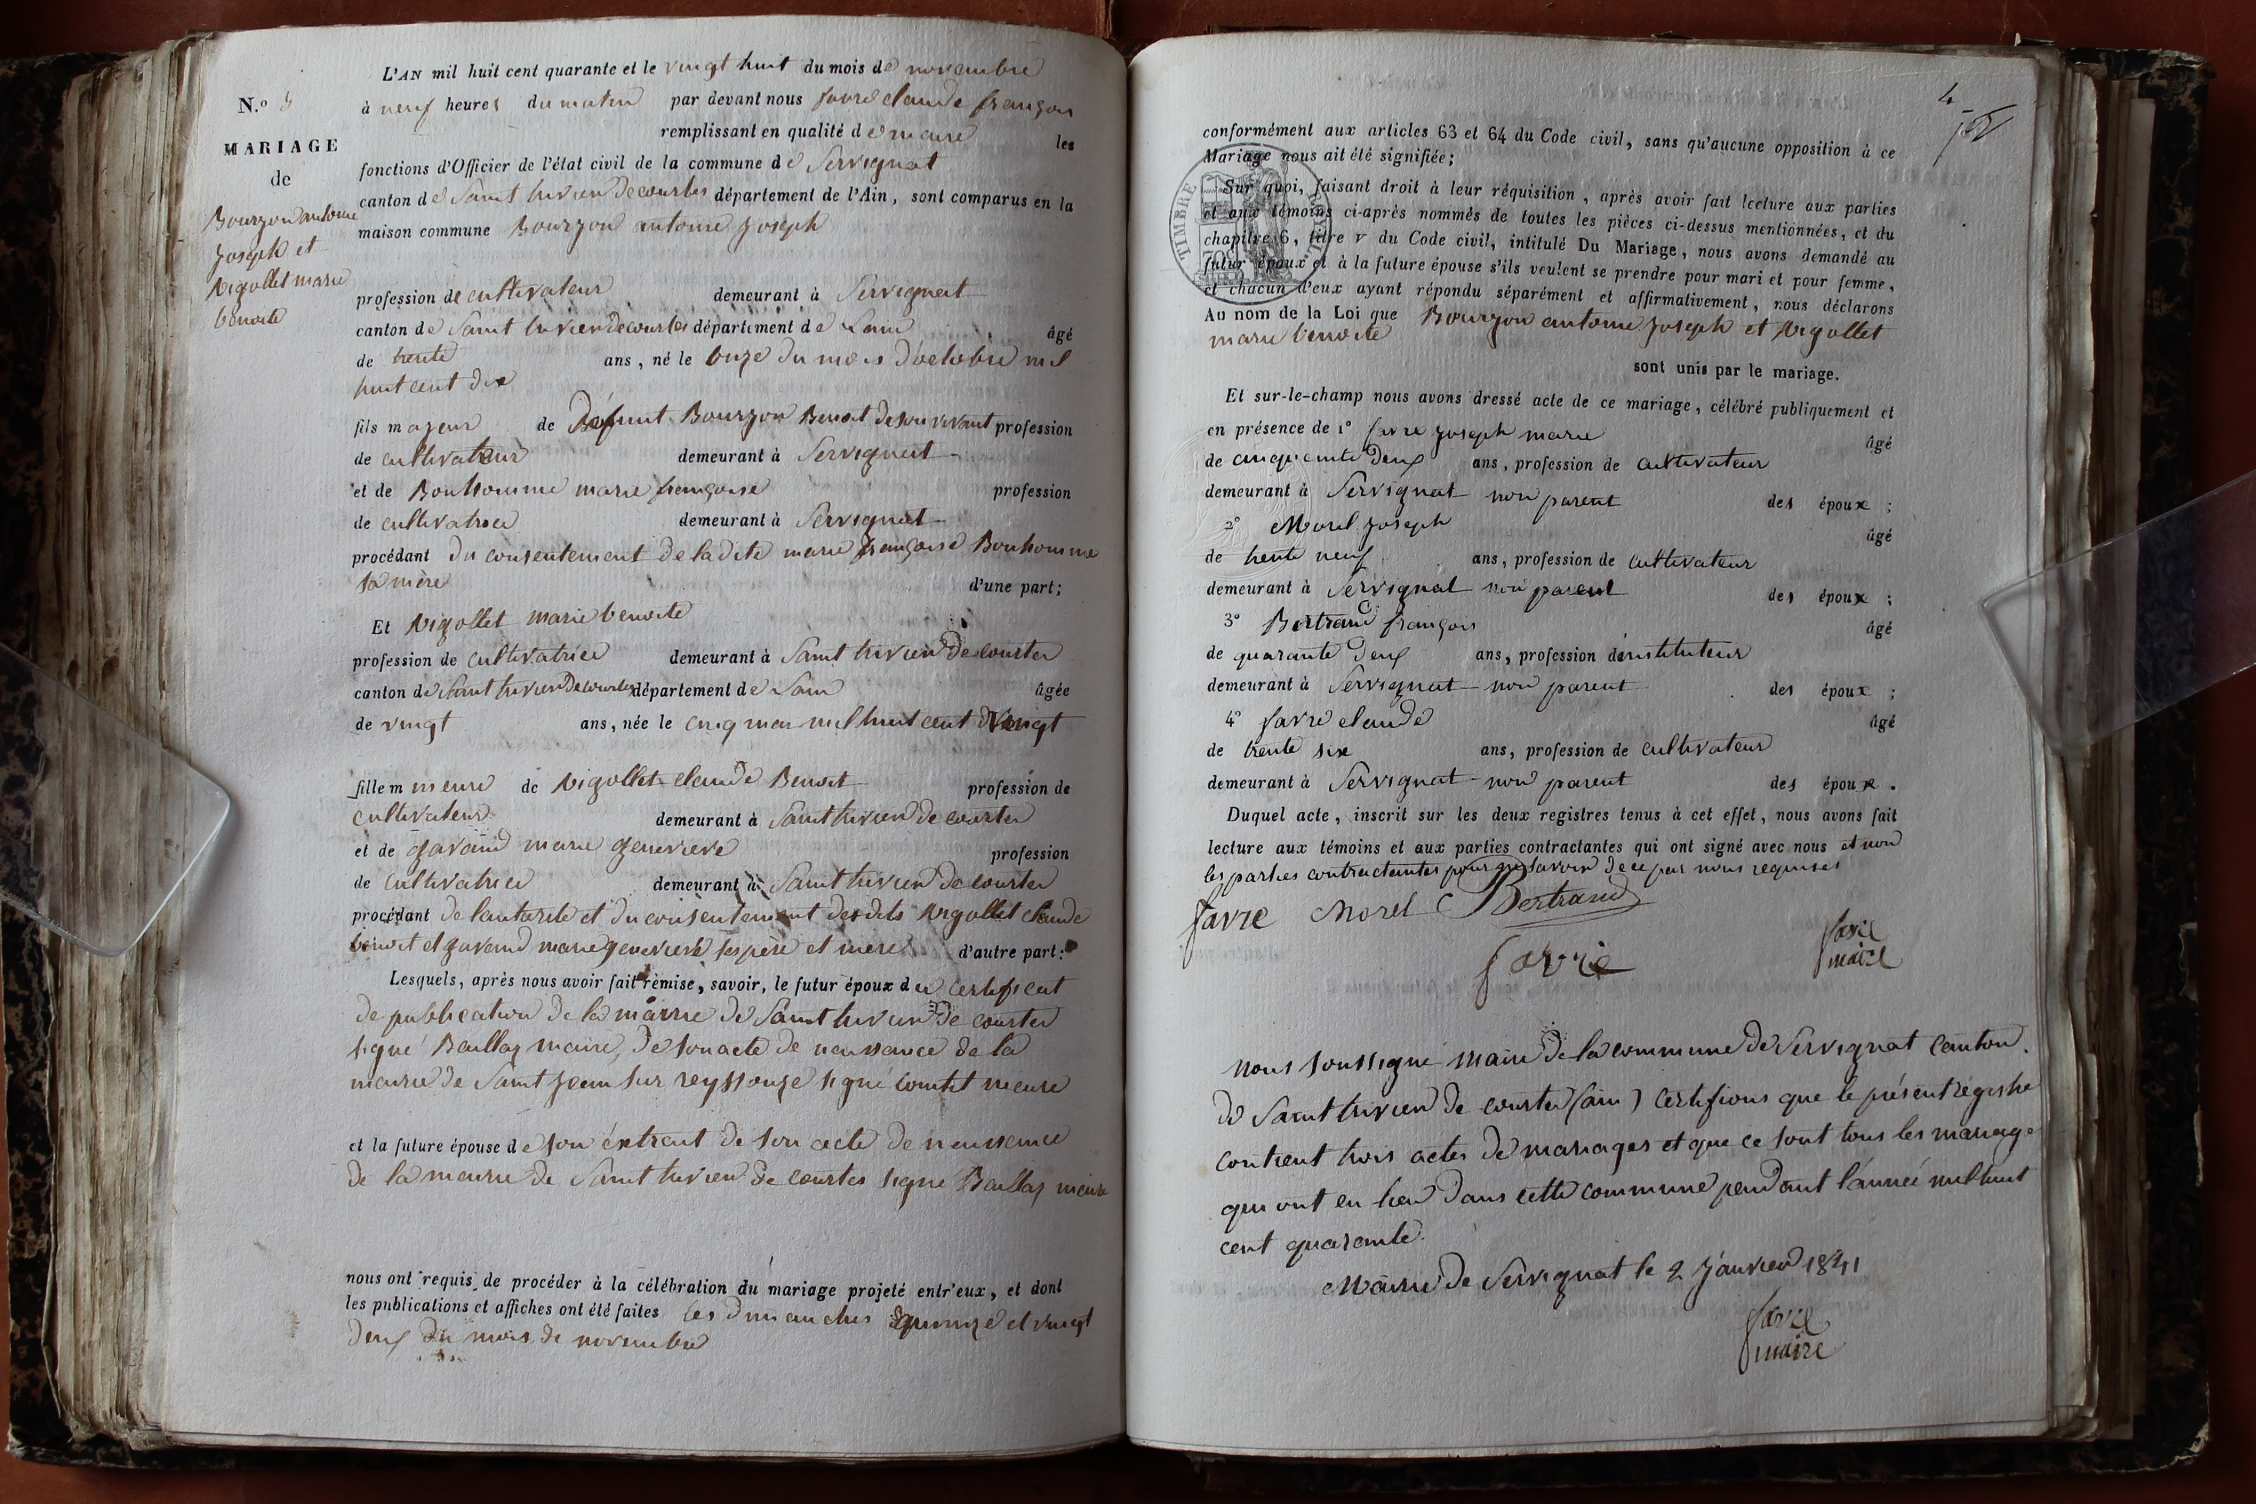 L'AN mil huit cent quarante et le vingt huit du mois de novembre
N.º 3 à neuf heures du matin par devant nous favre claude françois
remplissant en qualité de maire les
MARIAGE
fonctions d'Officier de l'état civil de la commune de Servignat
de
canton de Saint trivier de courtes département de l'Ain, sont comparus en la
maison commune Bourzon antoine Joseph
Bourzon antoine
Joseph et
Nigollet marie
benoite
profession de cultivateur demeurant à Servignat
canton de Saint trivier de courtes département de Lain âgé
de trente ans, né le onze du mois d'octobre mil
huit cent dix
fils majeur de Défunt Bourzon Benoit de son vivant profession
de cultivateur demeurant à Servignat
et de Bonhomme marie françoise profession
de cultivatrice demeurant à Servignat
procédant du consentement de la dite marie françoise Bonhomme
sa mère d'une part;
Et Nigollet marie benoite
profession de cultivatrice demeurant à Saint trivier de courtes
canton de Saint trivier de courtes département de Lain âgée
de vingt ans, née le cinq mai mil huit cent vingt
fille mineure de Nigollet claude Benoit profession de
cultivateur demeurant à Saint trivier de courtes
et de gavand marie genevieve profession
de cultivatrice demeurant à Saint trivier de courtes
procédant de l'autorité et du consentement desdits Nigollet claude
benoit et gavand marie genevieve ses père et mere d'autre part:
Lesquels, après nous avoir fait remise, savoir, le futur époux du certificat
de publication de la mairie de Saint trivier de courtes
signé Baillaz maire, de son acte de naissance de la
mairie de Saint Jean sur reyssouze signé comtet maire
et la future épouse de son éxtrait de son acte de naissance
de la mairie de Saint trivier de courtes signé Baillaz maire
nous ont requis de procéder à la célébration du mariage projeté entr'eux, et dont
les publications et affiches ont été faites les dimanches quinze et vingt
deux du mois de novembre
4
conformément aux articles 63 et 64 du Code civil, sans qu'aucune opposition à ce
Mariage nous ait été signifiée;
TIMBRE ROYAL
Sur quoi, faisant droit à leur réquisition, après avoir fait lecture aux parties
et aux témoins ci-après nommés de toutes les pièces ci-dessus mentionnées, et du
chapitre 6, titre v du Code civil, intitulé Du Mariage, nous avons demandé au
futur époux et à la future épouse s'ils veulent se prendre pour mari et pour femme,
et chacun d'eux ayant répondu séparément et affirmativement, nous déclarons
Au nom de la Loi que Bourzon antoine Joseph et Nigollet
marie benoite
sont unis par le mariage.
Et sur-le-champ nous avons dressé acte de ce mariage, célébré publiquement et
en présence de 1º favre Joseph marie âgé
de cinquante deux ans, profession de cultivateur
demeurant à Servignat non parent des époux;
2º Morel Joseph âgé
de trente neuf ans, profession de cultivateur
demeurant à Servignat non parent des époux;
3º Bertrand françois âgé
de quarante deux ans, profession d'instituteur
demeurant à Servignat non parent des époux;
4º favre claude âgé
de trente six ans, profession de cultivateur
demeurant à Servignat non parent des époux.
Duquel acte, inscrit sur les deux registres tenus à cet effet, nous avons fait
lecture aux témoins et aux parties contractantes qui ont signé avec nous et non
les parties contractantes pour ne savoir de ce par nous requises
favre Morel Bertrand
favre
favre
maire
Nous soussigné maire de la commune de Servignat canton
de Saint trivier de courtes (ain) certifions que le présent registre
contient trois actes de mariages et que ce sont tous les mariage
qui ont eu lieu dans cette commune pendant l'année mil huit
cent quarante.
Mairie de Servignat le 2 Janvier 1841
favre
maire